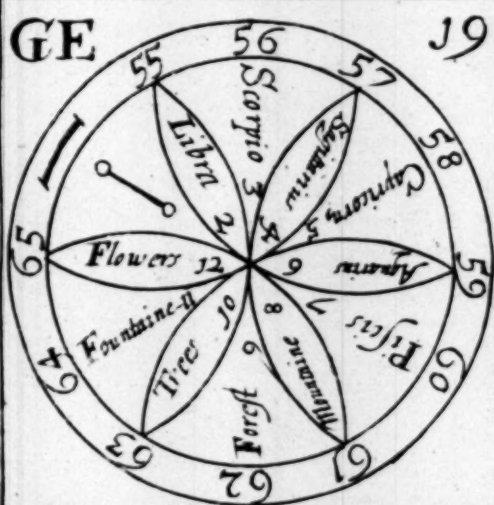 GE
19
55
56
57
58
59
60
61
62
63
64
65
Libra 2
Scorpio 3
Sagitarius 4
Capricorn, 5
Aquarius 6
Piſcis 7
Mountaine 8
Foreſt 9
Trees 10
Fountaine-11
Flowers 12